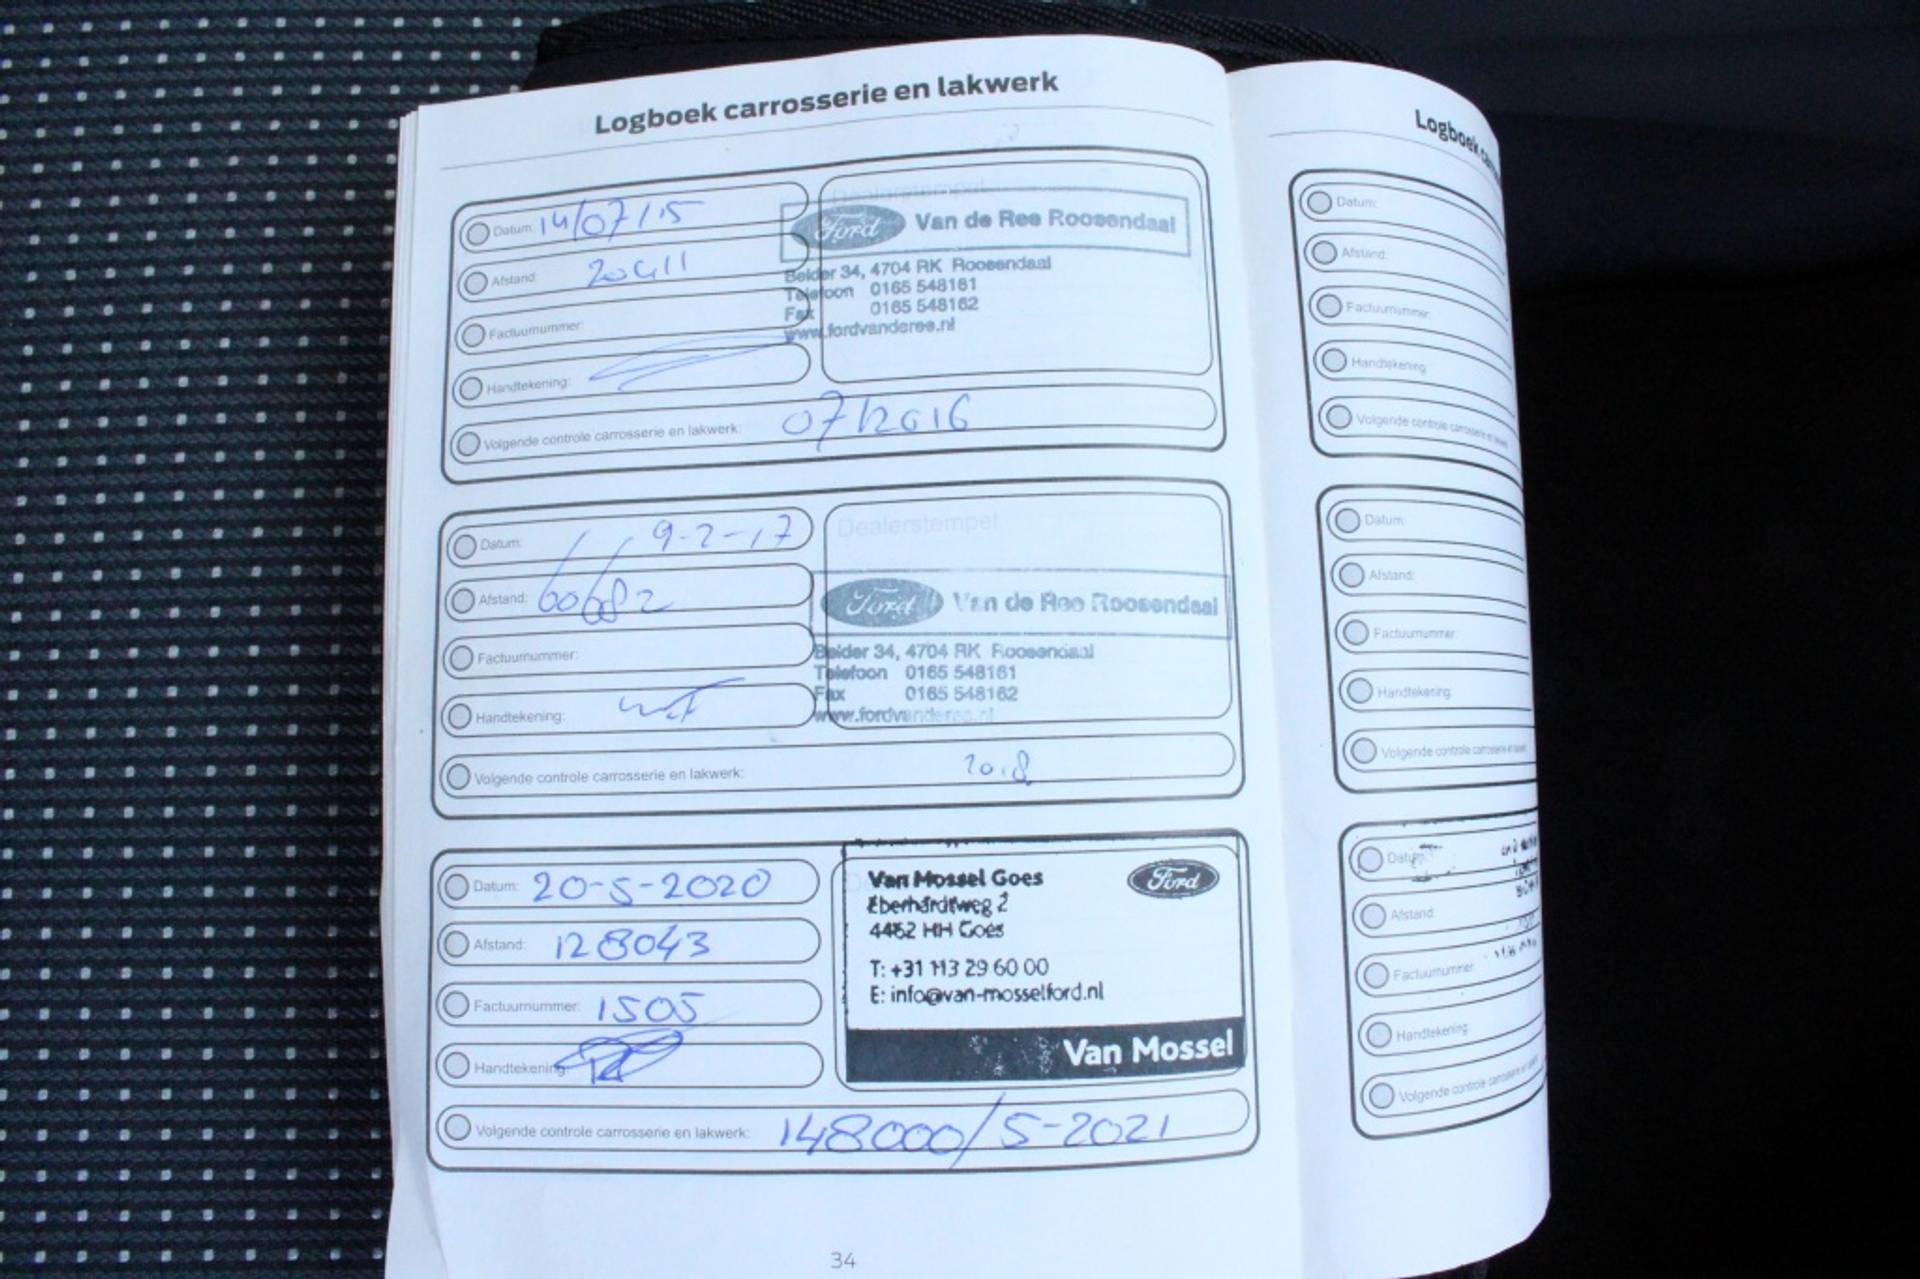 Logboek carrosserie en lakwerk
Datum: 14/07/15
Afstand: 20411
Factuurnummer:
Handtekening:
Volgende controle carrosserie en lakwerk: 07/2016
Dealerstempel
Ford Van de Ree Roosendaal
Belder 34, 4704 RK Roosendaal
Telefoon 0165 548161
Fax 0165 548162
www.fordvanderee.nl
Datum: 9-2-17
Afstand: 60682
Factuurnummer:
Handtekening:
Volgende controle carrosserie en lakwerk: 2018
Dealerstempel
Ford Van de Ree Roosendaal
Belder 34, 4704 RK Roosendaal
Telefoon 0165 548161
Fax 0165 548162
www.fordvanderee.nl
Datum: 20-5-2020
Afstand: 128043
Factuurnummer: 1505
Handtekening:
Volgende controle carrosserie en lakwerk: 148000/5-2021
Van Mossel Goes
Ford
Eberhardtweg 2
4462 HH Goes
T: +31 113 29 60 00
E: info@van-mosselford.nl
Van Mossel
34
Logboek
Datum:
Afstand:
Factuurnummer:
Handtekening:
Volgende controle carrosserie en
Datum:
Afstand:
Factuurnummer:
Handtekening:
Volgende controle carrosserie en
Datum:
Afstand:
Factuurnummer:
Handtekening:
Volgende controle carrosserie en